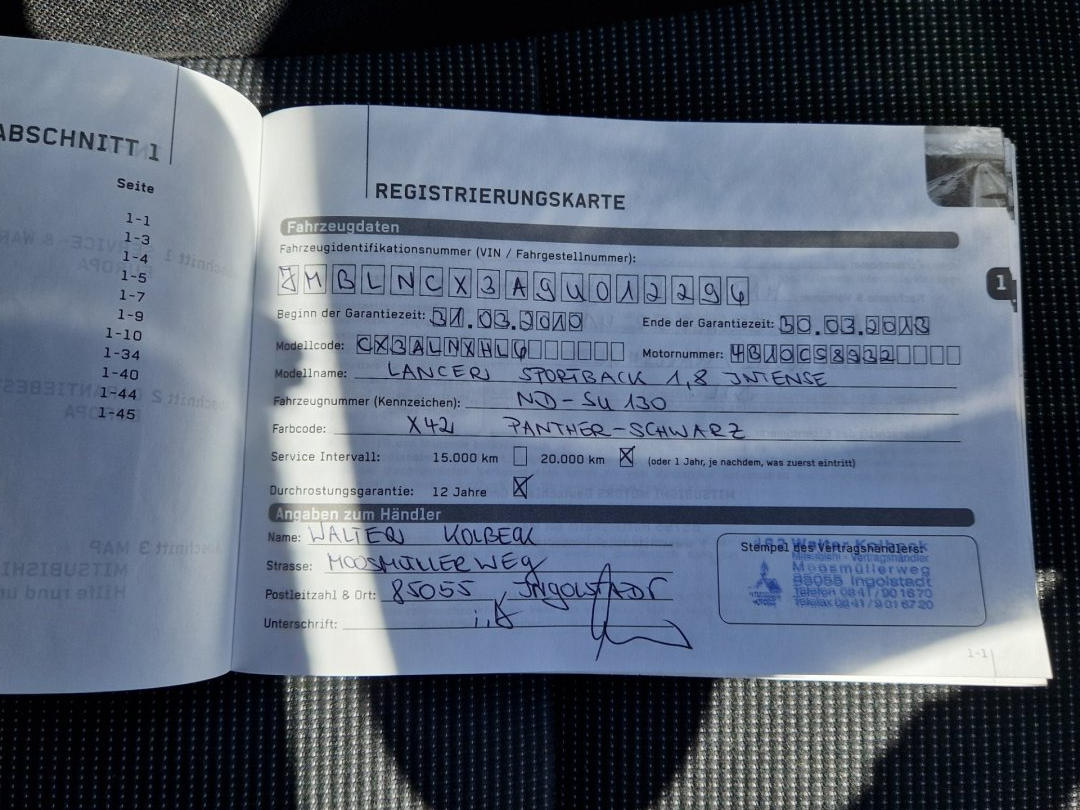 ABSCHNITT 1
Seite
1-1
1-3
1-4
1-5
1-7
1-9
1-10
1-34
1-40
1-44
1-45
REGISTRIERUNGSKARTE
Fahrzeugdaten
Fahrzeugidentifikationsnummer (VIN / Fahrgestellnummer):
JMBLNCX3A9U012294
Beginn der Garantiezeit: 31.03.2010 Ende der Garantiezeit: 30.03.2013
Modellcode: CX3ALNXHL6 Motornummer: 4B10CS8932
Modellname: LANCER SPORTBACK 1,8 INTENSE
Fahrzeugnummer (Kennzeichen): ND-SU 130
Farbcode: X42 PANTHER-SCHWARZ
Service Intervall: 15.000 km 20.000 km (oder 1 Jahr, je nachdem, was zuerst eintritt)
Durchrostungsgarantie: 12 Jahre
Angaben zum Händler
Name: WALTER KOLBECK
Strasse: MOOSMÜLLERWEG
Postleitzahl & Ort: 85055, INGOLSTADT
Unterschrift: i.A
Stempel des Vertragshändlers:
Walter Kolbeck
Mitsubishi - Vertragshändler
Moosmüllerweg
85055 Ingolstadt
Telefon 0841/901670
Telefax 0841/9016720
1-1
1